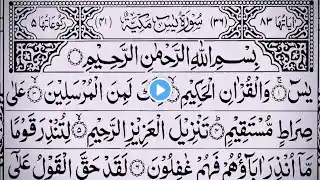 اٰيَاتُهَا ٨٣ (٣٦) سُوْرَةُ يٰسٓ مَكِّيَّةٌ (٤١) رُكُوْعَاتُهَا ٥
بِسْمِ اللّٰهِ الرَّحْمٰنِ الرَّحِيْمِ
يٰسٓ ۝١ وَالْقُرْاٰنِ الْحَكِيْمِ ۝٢ لَمِنَ الْمُرْسَلِيْنَ ۝٣ عَلٰى
صِرَاطٍ مُّسْتَقِيْمٍ ۝٤ تَنْزِيْلَ الْعَزِيْزِ الرَّحِيْمِ ۝٥ لِتُنْذِرَ قَوْمًا
مَّاۤ اُنْذِرَ اٰبَآؤُهُمْ فَهُمْ غٰفِلُوْنَ ۝٦ لَقَدْ حَقَّ الْقَوْلُ عَلٰۤى